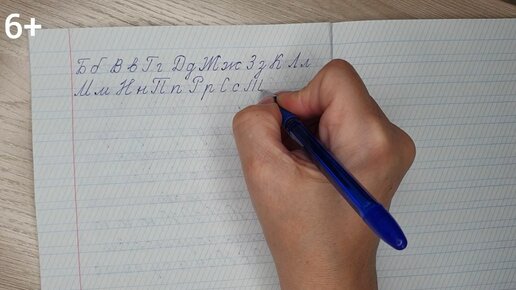 6+
Бб Вв Гг Дд Жж Зз К Лл
Мм Нн Пп Рр Сс